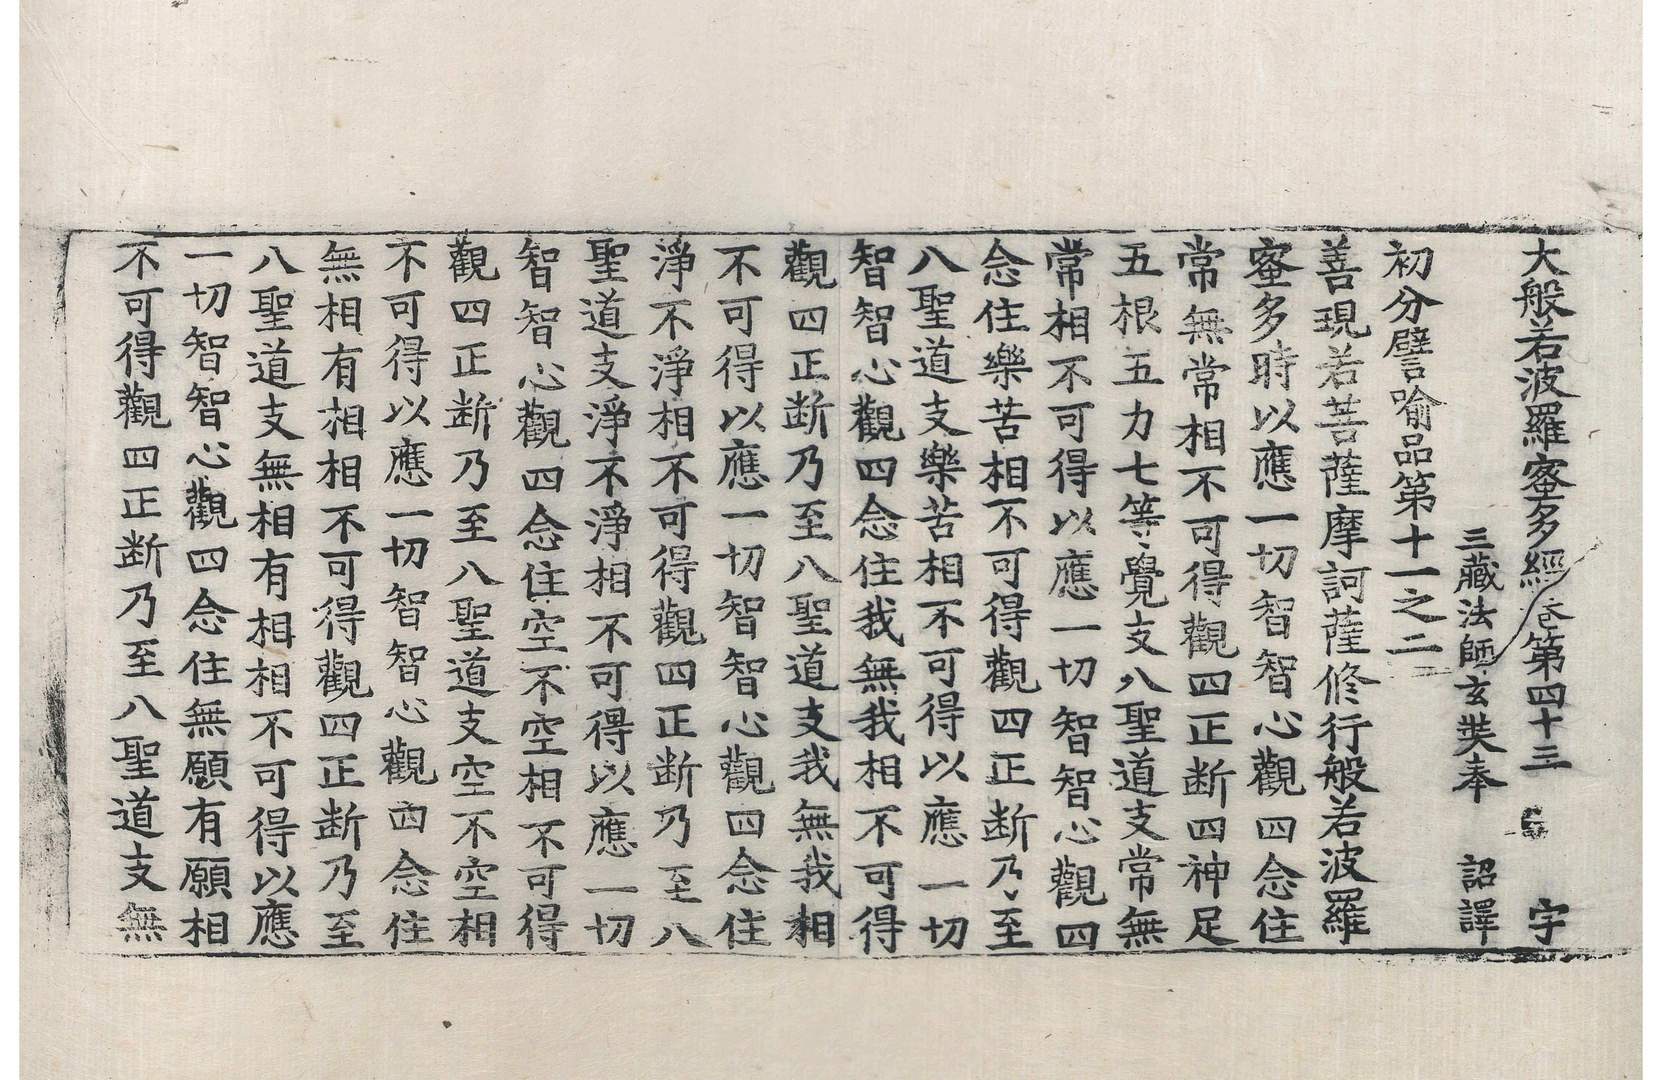 大般若波羅蜜多經卷第四十三 字
三藏法師玄奘奉 詔譯
初分譬喻品第十一之二
善現若菩薩摩訶薩修行般若波羅
蜜多時以應一切智智心觀四念住
常無常相不可得觀四正断四神足
五根五力七等覺支八聖道支常無
常相不可得以應一切智智心觀四
念住樂苦相不可得觀四正断乃至
八聖道支樂苦相不可得以應一切
智智心觀四念住我無我相不可得
觀四正断乃至八聖道支我無我相
不可得以應一切智智心觀四念住
淨不淨相不可得觀四正断乃至八
聖道支淨不淨相不可得以應一切
智智心觀四念住空不空相不可得
觀四正断乃至八聖道支空不空相
不可得以應一切智智心觀四念住
無相有相相不可得觀四正断乃至
八聖道支無相有相相不可得以應
一切智智心觀四念住無願有願相
不可得觀四正断乃至八聖道支無